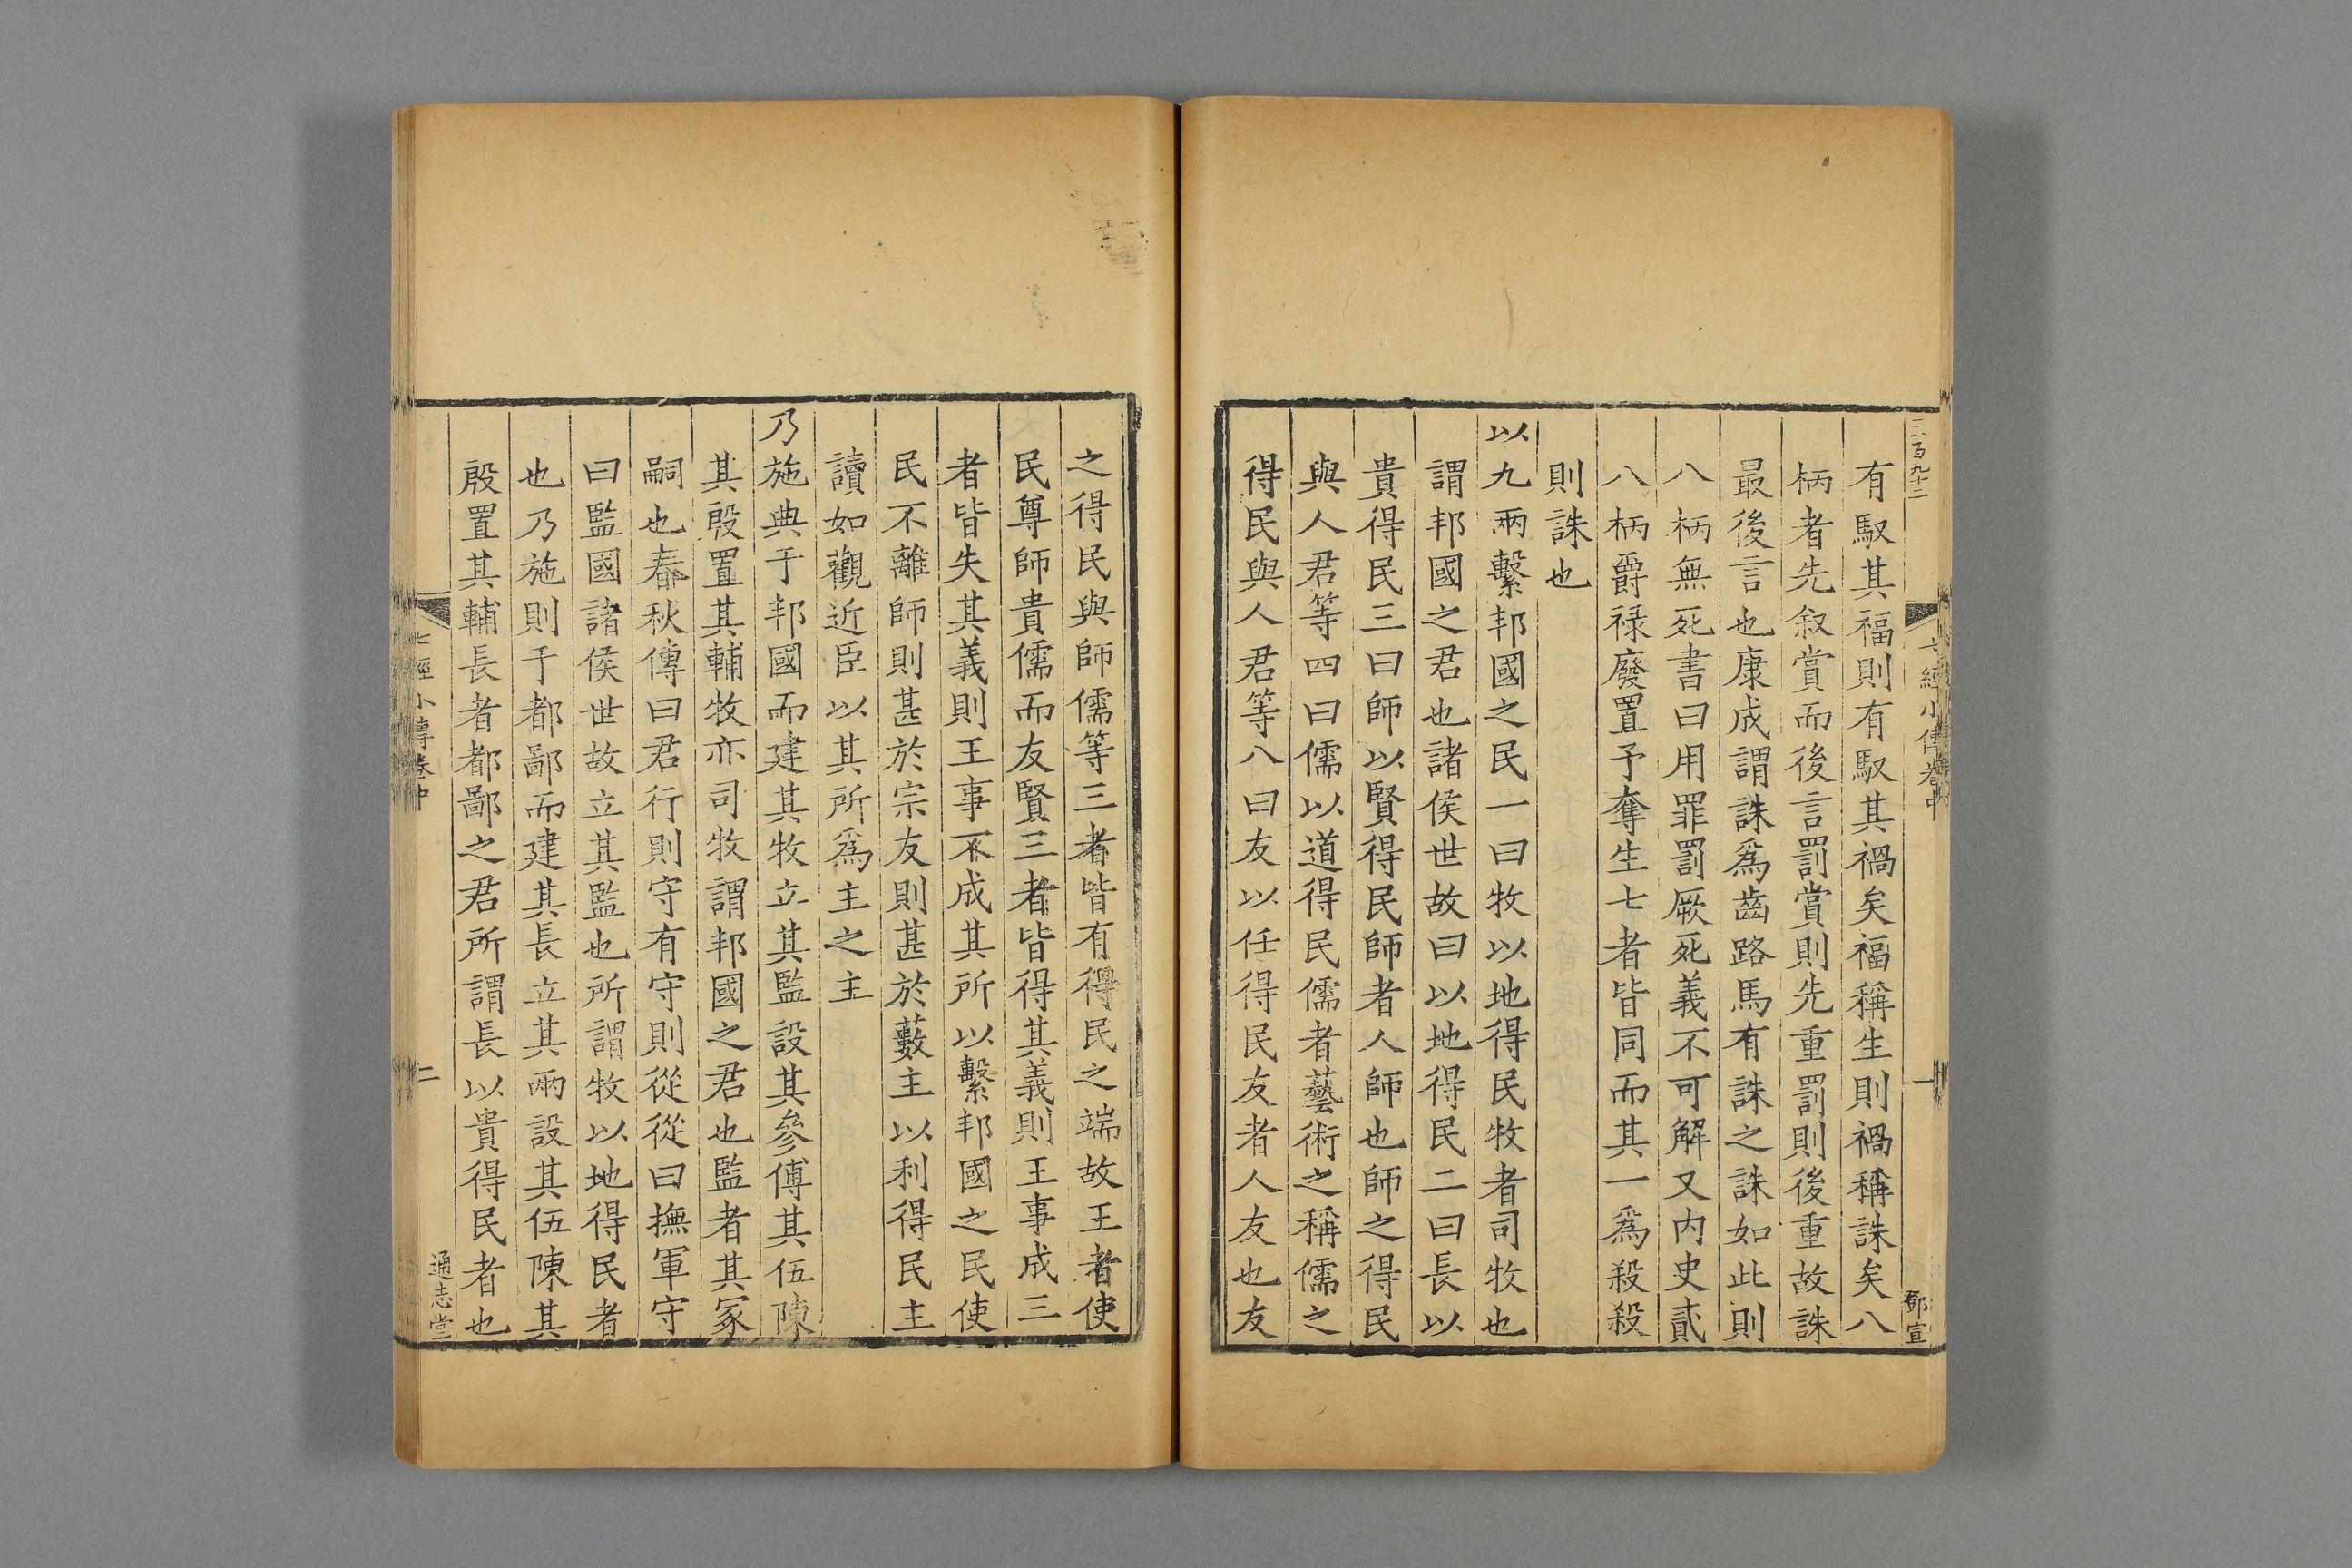 三百九十二
七經小傳卷中
一
鄧宣
有馭其福則有馭其禍矣福稱生則禍稱誅矣八
柄者先叙賞而後言罰賞則先重罰則後重故誅
最後言也康成謂誅爲齒路馬有誅之誅如此則
八柄無死書曰用罪罰厥死義不可解又内史貳
八柄爵禄廢置予奪生七者皆同而其一爲殺殺
則誅也
以九兩繫邦國之民一曰牧以地得民牧者司牧也
謂邦國之君也諸侯世故曰以地得民二曰長以
貴得民三曰師以賢得民師者人師也師之得民
與人君等四曰儒以道得民儒者藝術之稱儒之
得民與人君等八曰友以任得民友者人友也友
之得民與師儒等三者皆有得民之端故王者使
民尊師貴儒而友賢三者皆得其義則王事成三
者皆失其義則王事不成其所以繫邦國之民使
民不離師則甚於宗友則甚於藪主以利得民主
讀如觀近臣以其所爲主之主
乃施典于邦國而建其牧立其監設其參傅其伍陳
其殷置其輔牧亦司牧謂邦國之君也監者其冢
嗣也春秋傳曰君行則守有守則從從曰撫軍守
曰監國諸侯世故立其監也所謂牧以地得民者
也乃施則于都鄙而建其長立其兩設其伍陳其
殷置其輔長者都鄙之君所謂長以貴得民者也
七經小傳卷中
二
通志堂